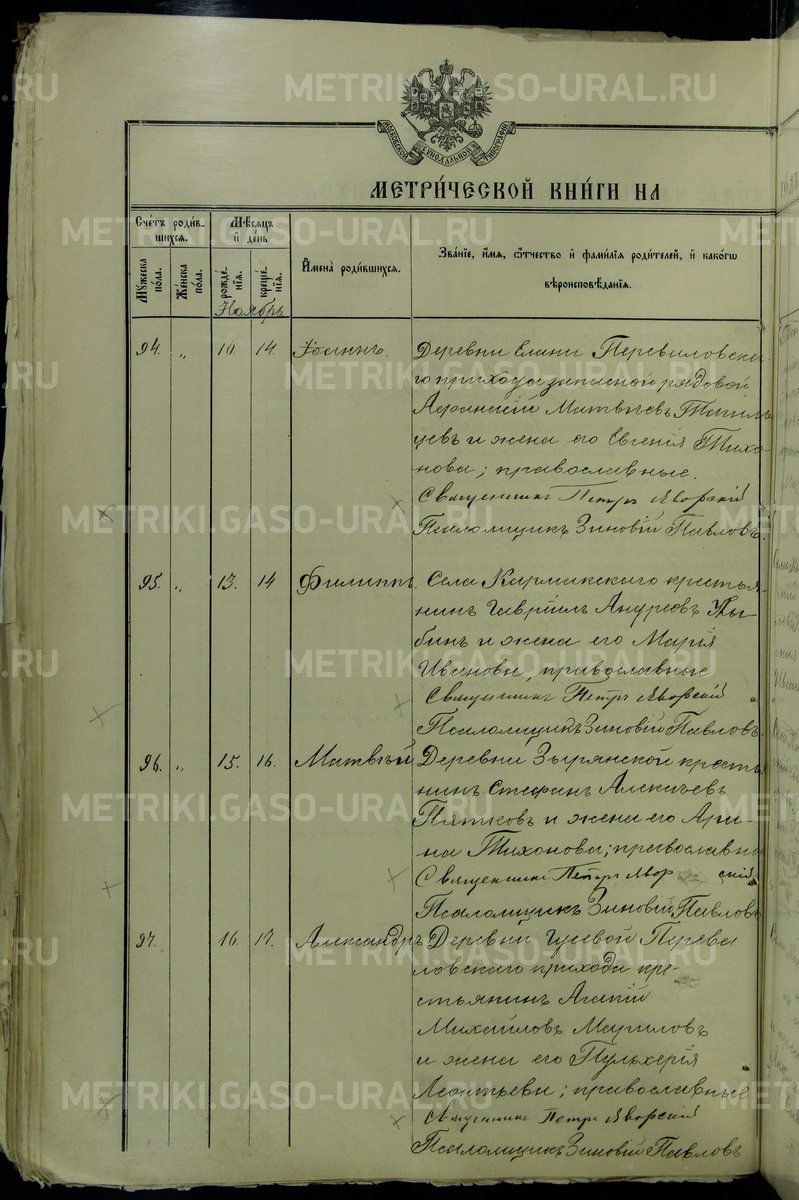 METRIKI.GASO-URAL.RU
МОСКОВСКОЙ СѴНОДАЛЬНОЙ ТИПОГРАФІИ
МЕТРИ́ЧЕСКОЙ КНИ́ГИ НА
Сче́тъ роди́в-
шихся.
Му́жеска
по́ла.
Же́нска
по́ла.
Мѣ́сяцъ
и де́нь
рожде-
нія.
креще-
нія.
И̓мена̀ роди́вшихся.
Зва́ніе, и́мя, ѻ҆́тчество и фами́лія роди́телей, и како́гѡ
вѣроисповѣ́данія.
Ноябрь
94. „ 10 14. Іоаннъ.
Деревни Елани Переваловска-
го прихода запасной рядовой
Аѳанасій Матвѣевъ
цевъ и жена его Евгенія Тихо-
нова; православные.
Священникъ Петръ Яворскій
Псаломщикъ Зиновій Павловъ.
95. „ 13. 14 Филиппъ.
Села Кармакскаго крестья-
нинъ Гавріилъ Андреевъ
бинъ и жена его Марія
Иванова, православные
Священникъ Петръ Яворскій
Псаломщикъ Зиновій Павловъ.
96. „ 15. 16. Матвѣй
Деревни Зырянской кресть
нинъ Стефанъ Алексѣевъ
Пятковъ и жена его Ари-
на Тихонова; православны
Священникъ Петръ Явор скій
Псаломщикъ Зиновій Павловъ
97. 16. 17. Александръ
Деревни Гусевой Перева
ловскаго прихода кре-
стьянинъ Агапій
Михайловъ
и жена его Пульхерія
Леонтьева; православные
Священникъ Петръ Яворскій
Псаломщикъ Зиновій Павловъ